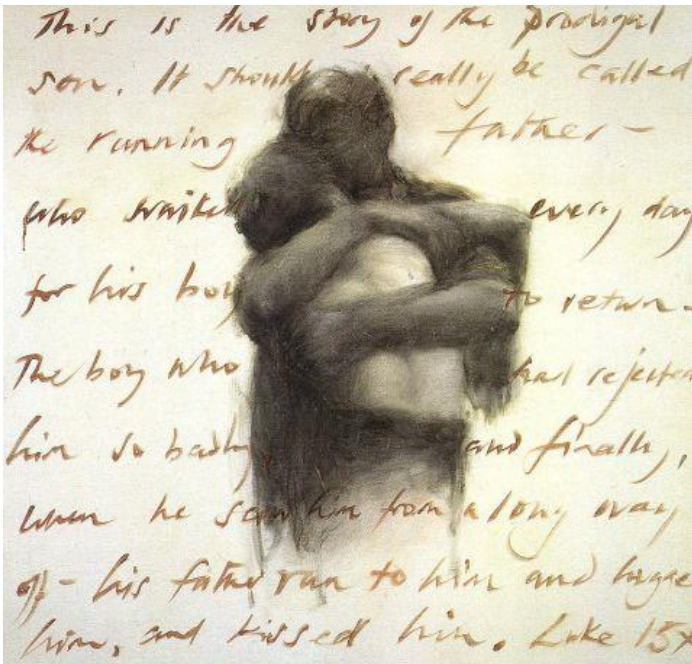 This is the story of the prodigal
son. It should really be called
the running father -
who waited every day
for his boy to return -
The boy who had rejected
him so badly, and finally,
when he saw him from a long way
off - his father ran to him and hugge
him, and kissed him. Luke 15